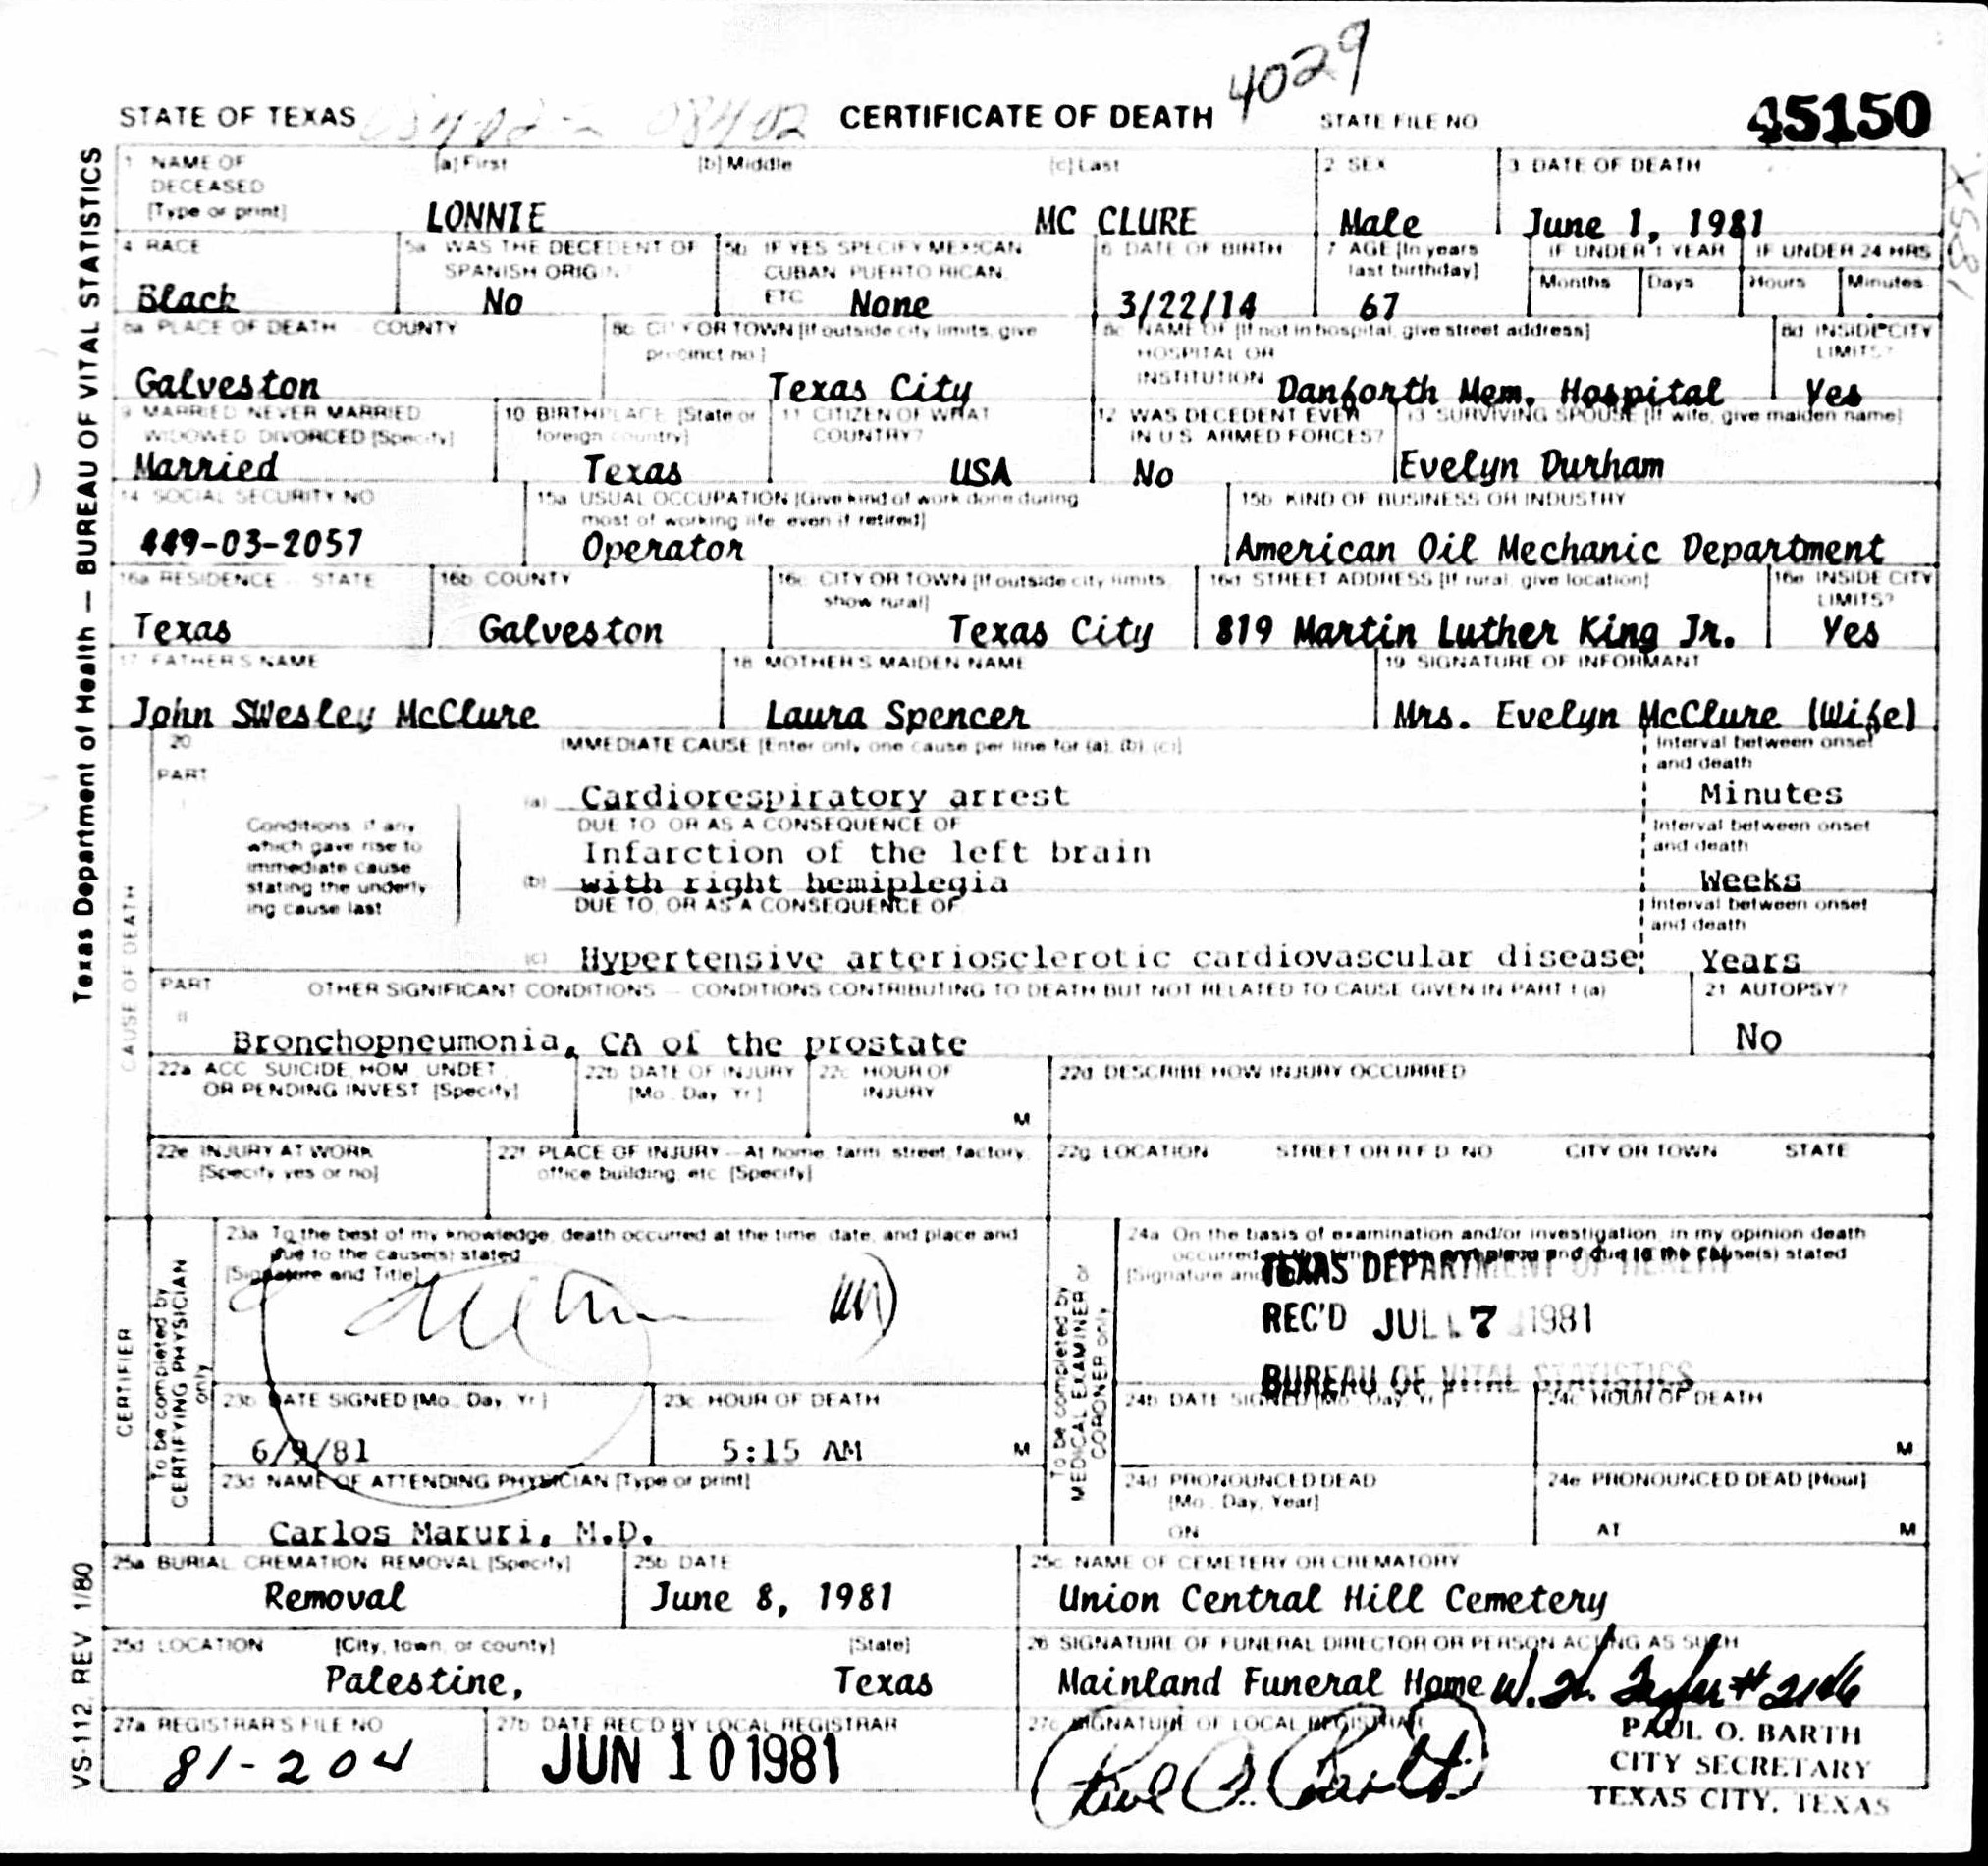 4029
STATE OF TEXAS 08402 CERTIFICATE OF DEATH STATE FILE NO 45150
1 NAME OF DECEASED [Type or print] [a] First [b] Middle [c] Last 2 SEX 3 DATE OF DEATH
LONNIE MC CLURE Male June 1, 1981
4 RACE 5a WAS THE DECEDENT OF SPANISH ORIGIN 5b IF YES SPECIFY MEXICAN CUBAN PUERTO RICAN ETC 6 DATE OF BIRTH 7 AGE [In years last birthday] IF UNDER 1 YEAR IF UNDER 24 HRS
Months Days Hours Minutes
Black No None 3/22/14 67
8a PLACE OF DEATH - COUNTY 8b CITY OR TOWN [If outside city limits, give precinct no.] 8c NAME OF [If not in hospital, give street address] HOSPITAL OR INSTITUTION 8d INSIDE CITY LIMITS?
Galveston Texas City Danforth Mem. Hospital Yes
9 MARRIED NEVER MARRIED WIDOWED DIVORCED [Specify] 10 BIRTHPLACE [State or foreign country] 11 CITIZEN OF WHAT COUNTRY? 12 WAS DECEDENT EVER IN U.S. ARMED FORCES? 13 SURVIVING SPOUSE [If wife, give maiden name]
Married Texas USA No Evelyn Durham
14 SOCIAL SECURITY NO 15a USUAL OCCUPATION [Give kind of work done during most of working life, even if retired] 15b KIND OF BUSINESS OR INDUSTRY
449-03-2057 Operator American Oil Mechanic Department
16a RESIDENCE - STATE 16b COUNTY 16c CITY OR TOWN [If outside city limits, show rural] 16d STREET ADDRESS [If rural, give location] 16e INSIDE CITY LIMITS?
Texas Galveston Texas City 819 Martin Luther King Jr. Yes
17 FATHER'S NAME 18 MOTHER'S MAIDEN NAME 19 SIGNATURE OF INFORMANT
John SWesley McClure Laura Spencer Mrs. Evelyn McClure (Wife)
20 IMMEDIATE CAUSE [Enter only one cause per line for (a), (b), (c)] Interval between onset and death
PART I
(a) Cardiorespiratory arrest Minutes
Conditions, if any which gave rise to immediate cause stating the underlying cause last
DUE TO OR AS A CONSEQUENCE OF Interval between onset and death
Infarction of the left brain
(b) with right hemiplegia Weeks
DUE TO, OR AS A CONSEQUENCE OF Interval between onset and death
(c) Hypertensive arteriosclerotic cardiovascular disease Years
PART II OTHER SIGNIFICANT CONDITIONS - CONDITIONS CONTRIBUTING TO DEATH BUT NOT RELATED TO CAUSE GIVEN IN PART I (a) 21 AUTOPSY?
Bronchopneumonia, CA of the prostate No
22a ACC SUICIDE, HOM UNDET OR PENDING INVEST [Specify] 22b DATE OF INJURY [Mo., Day, Yr.] 22c HOUR OF INJURY M 22d DESCRIBE HOW INJURY OCCURRED
22e INJURY AT WORK [Specify yes or no] 22f PLACE OF INJURY - At home, farm, street, factory, office building, etc. [Specify] 22g LOCATION STREET OR R F D NO CITY OR TOWN STATE
23a To the best of my knowledge, death occurred at the time, date, and place and due to the cause(s) stated
[Signature and Title]
24a On the basis of examination and/or investigation, in my opinion death occurred
[Signature and
TEXAS DEPARTMENT OF HEALTH
REC'D JUL 7 1981
BUREAU OF VITAL STATISTICS
23b DATE SIGNED [Mo., Day, Yr.] 23c HOUR OF DEATH 24b DATE SIGNED [Mo., Day, Yr.] 24c HOUR OF DEATH
6/9/81 5:15 AM M M
23d NAME OF ATTENDING PHYSICIAN [Type or print] 24d PRONOUNCED DEAD [Mo., Day, Year] 24e PRONOUNCED DEAD [Hour]
Carlos Maruri, M.D. ON AT M
25a BURIAL, CREMATION, REMOVAL [Specify] 25b DATE 25c NAME OF CEMETERY OR CREMATORY
Removal June 8, 1981 Union Central Hill Cemetery
25d LOCATION [City, town, or county] [State] 26 SIGNATURE OF FUNERAL DIRECTOR OR PERSON ACTING AS SUCH
Palestine, Texas Mainland Funeral Home
27a REGISTRAR'S FILE NO 27b DATE REC'D BY LOCAL REGISTRAR 27c SIGNATURE OF LOCAL REGISTRAR
81-204 JUN 10 1981 Paul O. Barth
PAUL O. BARTH
CITY SECRETARY
TEXAS CITY, TEXAS
Texas Department of Health — BUREAU OF VITAL STATISTICS
CAUSE OF DEATH
CERTIFIER
To be completed by CERTIFYING PHYSICIAN only
To be completed by MEDICAL EXAMINER or CORONER only
VS-112, REV. 1/80